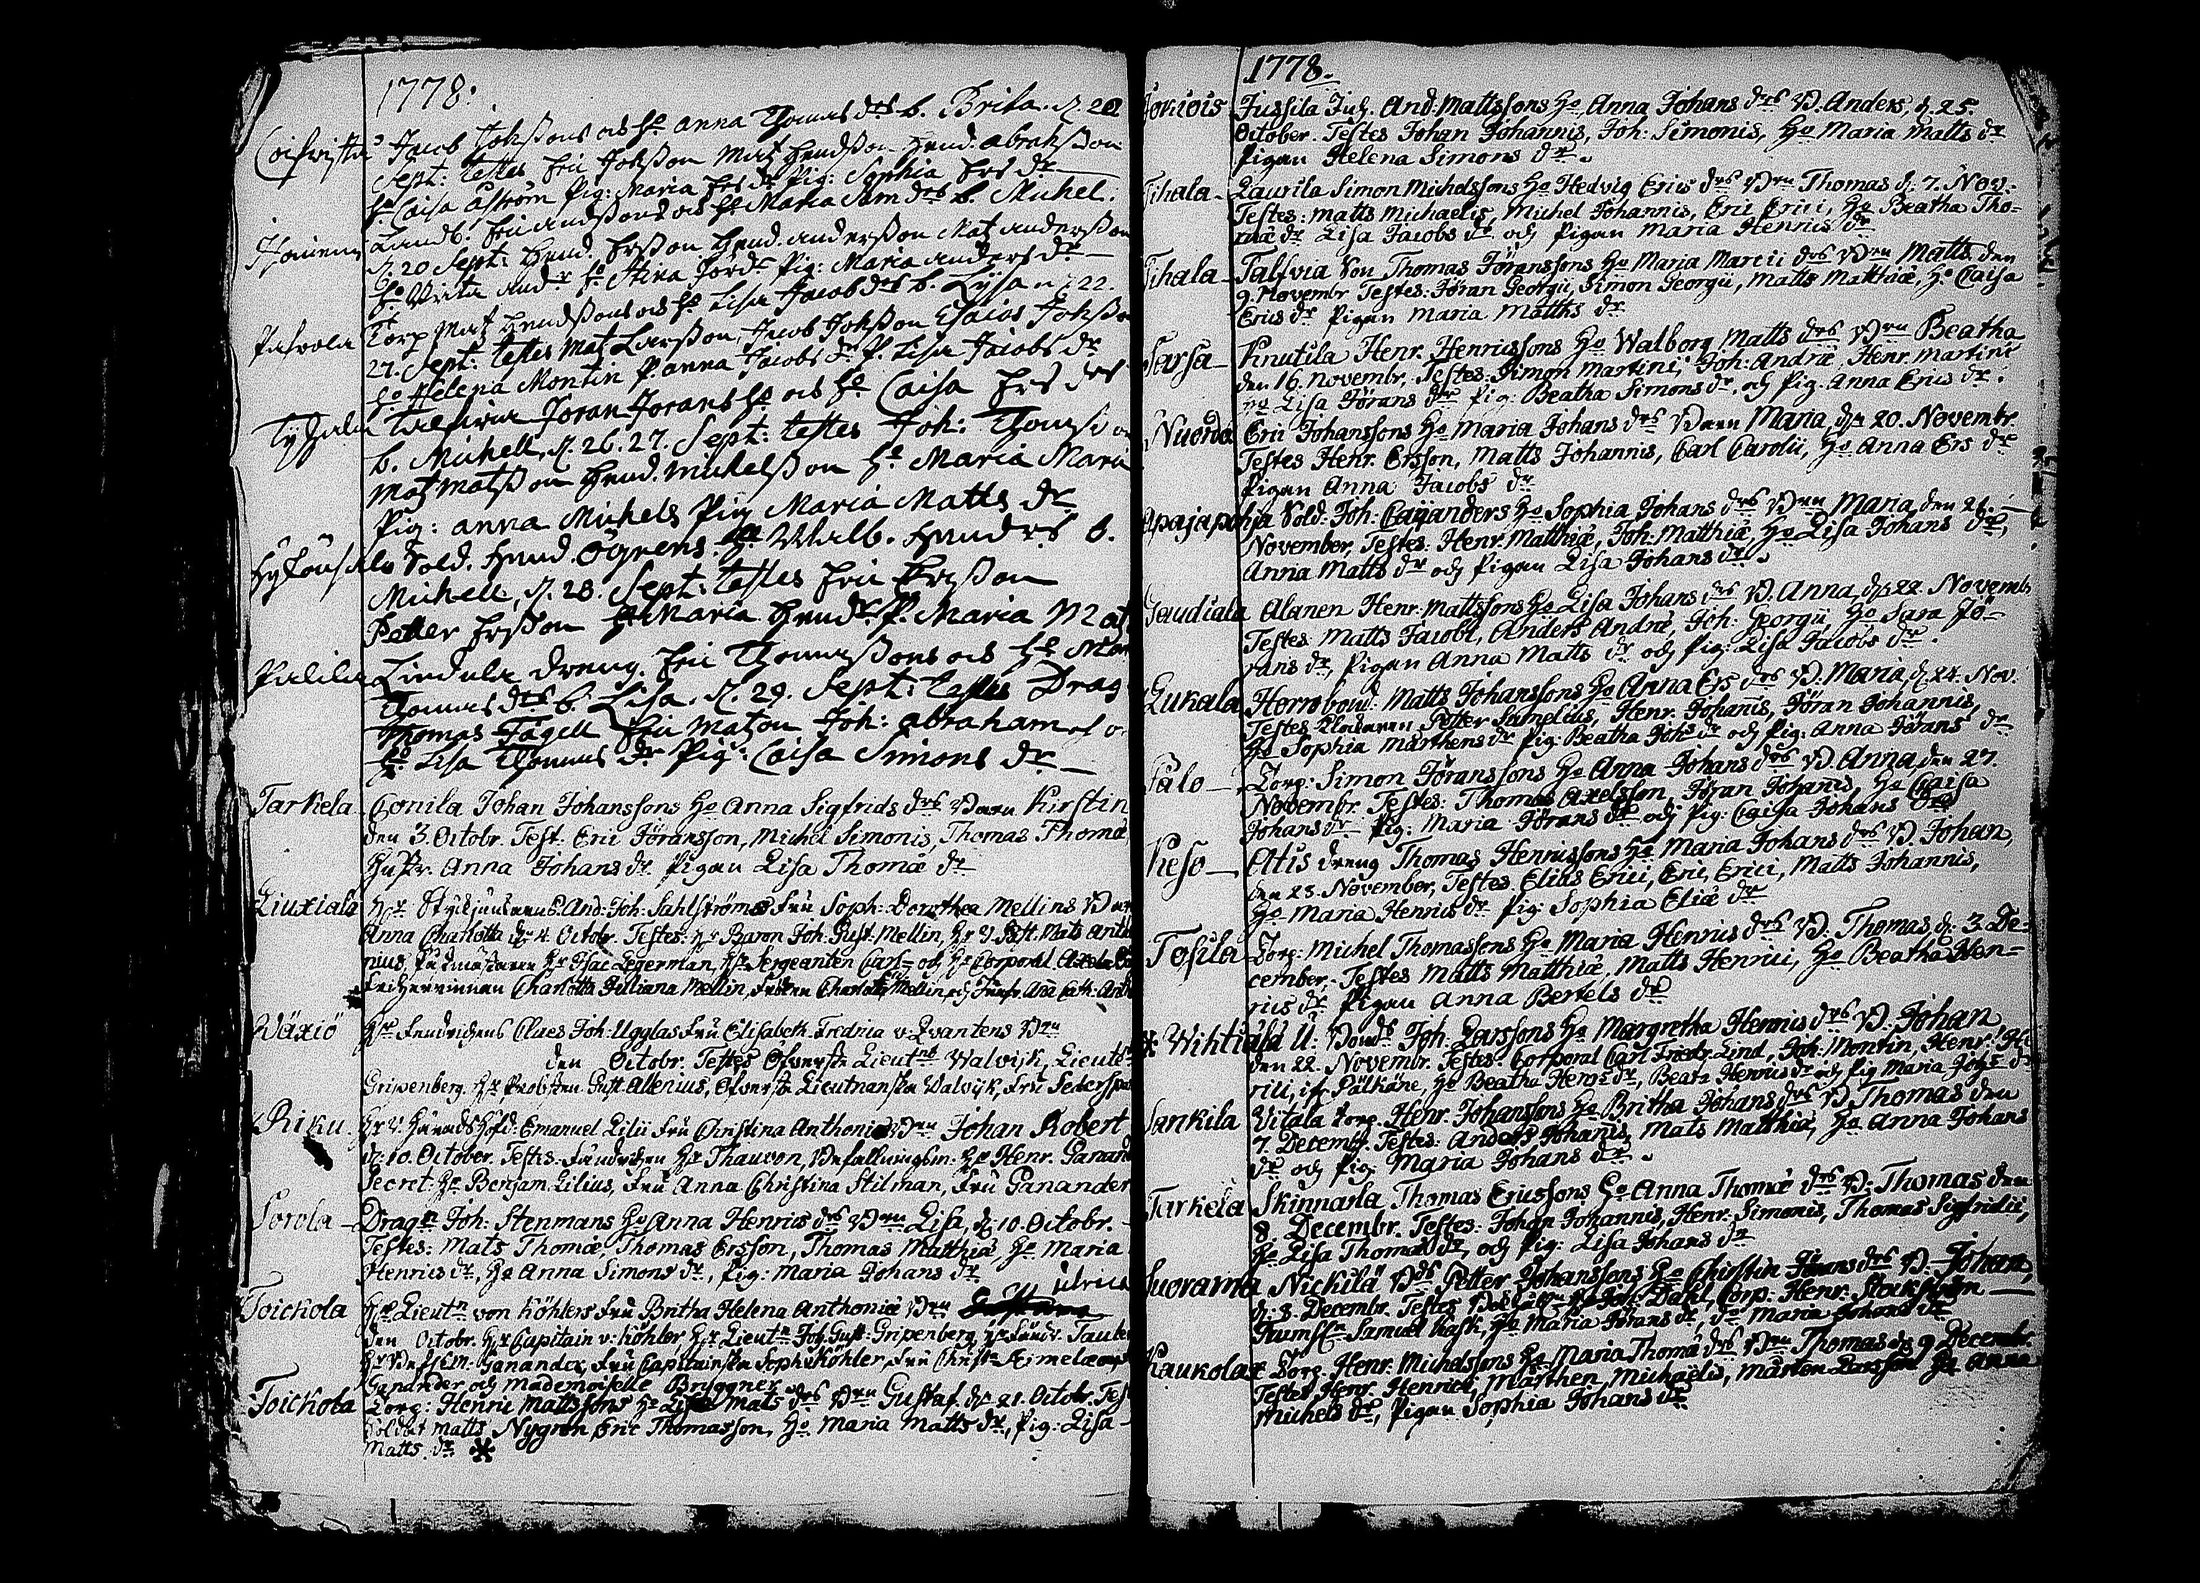 1778:
Jacob Johssons och ho Anna Thomas drs b. Brita. d. 20
Sept: testes Eric Johsson Mat Hendsson Hend. Abrahsson
ho Caisa Åström Pig: Maria Ers dr Pig: Sophia Ers dr
Landb. Eric Andssons och ho Maria Sim drs b. Michel.
d. 20 Sept: Hend. Ersson Hend. Andersson Mat Andersson
ho Brita And dr ho Stina Jör dr Pig: Maria Anders dr
Torp Mat Hendssons och ho Lisa Jacobs drs b. Lisa d. 22.
27. Sept: testes Mat Larsson, Jacob Johsson Esaias Johsson
ho Helena Montin P. Anna Jacobs dr P. Lisa Jacobs dr
Tyhala Joran Jorans ho och ho Caisa Ers drs
b. Michell, d. 26. 27. Sept: testes Joh: Thomsson
Mat Matsson Hend. Michelsson ho Maria
Pig: Anna Michels Pig Maria Matts dr
Sold. Hend. Ögrens ho Walb. Hend drs b.
Michell, d. 28. Sept: testes Eric Ersson
Petter Ersson ho Maria Hend dr P. Maria Mat
Palila Lindula dreng. Eric Thomassons och ho
Thomas drs b. Lisa. d. 29. Sept: testes Drag
Thomas Fagell Eric Matson Joh: Abraham
ho Lisa Thomas dr Pig: Caisa Simons dr
Tarkela Conila Johan Johanssons ho Anna Sigfrids drs Barn Kirstin
den 3. Octobr. Test. Eric Jöransson, Michel Simonis, Thomas Thomæ
Hustr. Anna Johans dr Pigan Lisa Thomæ dr
Liuxiala Hr Styckjunkarens And: Joh: Sahlströms Fru Soph: Dorothea Mellins Barn
Anna Charlotta d. 4. Octobr. Testes: Hr Baron Joh. Gust. Mellin, Hr Mats
Isac Legerman, Hr Sergeanten Carl och Hr Corporal
Friherrinnan Charlotta Juliana Mellin, Fröken Charlotta Mellin och Jungfr. Ana Cath:
Wäxiö Hr Fendrichens Claes Joh: Ugglas Fru Elisabeth Fredrica v. Qvantens Bn
den Octobr. Testes Öfverste Lieutn Walvijk, Lieutn
Gripenberg. Hr Probsten Gust. Allenius, Öfverste Lieutnanskan Walvijk, Fru
Riku Hr V. Häradshöfd: Emanuel Lilii Fru Christina Anthonia Bn Johan Robert
d. 10. October. Testes: Fendrichen Hr Thauvon, Befallningsm. Hr Henr. Ganand
Secret: Hr Benjam: Lilius, Fru Anna Christina Stilman, Fru Ganander
Sorola Dragn Joh: Stenmans ho Anna Henrics drs Bn Lisa, d. 10. Octobr.
Testes: Mats Thomæ, Thomas Ersson, Thomas Matthiæ, ho Maria
Henrics dr, ho Anna Simons dr, Pig: Maria Johans dr
Ulrica
Toickola Hr Lieutn von Köhlers Fru Britha Helena Anthoniæ Bn
den Octobr. Hr Capitain v. Köhler, Hr Lieutn Joh. Gust: Gripenberg, Hr Fendr.
Ganander, Fru Capitainskan Soph: Köhler, Fru Christ:
Ganander och Mademoiselle Bryggner
Toickola Torp: Henric Mattssons ho Lisa Mats drs Bn Gustaf d. 21. Octobr. Test
Soldat Matts Nygren, Eric Thomasson, ho Maria Matts dr, Pig: Lisa
Matts dr *
1778.
Jussila Juh. And: Mattssons ho Anna Johans drs B. Anders, d. 25.
October. Testes Johan Johannis, Joh: Simonis, ho Maria Matts dr
Pigan Helena Simons dr.
Laurila Simon Michelssons ho Hedvig Erics drs Bn Thomas d. 7. Nov.
Testes: Matts Michaelis, Michel Johannis, Eric Erici, ho Beatha Tho-
mæ dr Lisa Jacobs dr och Pigan Maria Henrics dr
Talfvia Son Thomas Jöranssons ho Maria Marci drs Bn Matts den
9. Novembr Testes: Jöran Georgii, Simon Georgii, Matts Matthiæ, ho Caisa
Erics dr Pigan Maria Matths dr
Sarsa Knutila Henr. Henricssons ho Walborg Matts drs Bn Beatha
den 16. Novembr. Testes: Simon Martini, Joh: Andræ, Henr. Martini
ho Lisa Jörans dr Pig: Beatha Simons dr och Pig. Anna Erics dr.
Eric Johanssons ho Maria Johans drs Barn Maria, d. 20. Novembr.
Testes Henr. Ersson, Matts Johannis, Carl Carolii, ho Anna Ers dr
Pigan Anna Jacobs dr
Opajapohja Sold. Joh: Cajanders ho Sophia Johans drs Bn Maria, den 21.
November, Testes: Henr. Matthiæ, Joh: Matthiæ, ho Lisa Johans dr,
Anna Matts dr och Pigan Lisa Johans dr.
Alanen Henr: Mattssons ho Lisa Johans drs B. Anna, d. 22. Novembr
Testes Matts Jacobi, Anders Andræ, Joh: Georgii, ho Sara Jö-
rans dr, Pigan Anna Matts dr och Pig: Lisa Jacobs dr.
Matts Johanssons ho Anna Ers drs B. Maria, d. 24. Nov.
Testes Klockaren Petter Lamelius, Henr. Johanis, Jöran Johannis,
ho Sophia Marthens dr Pig: Beatha Joh: dr och Pig: Anna Jörans dr
Salo Torp: Simon Jöranssons ho Anna Johans drs B. Anna, den 27.
Novembr. Testes: Thomas Axelsson, Jöran Johanis, ho Caisa
Johans dr Pig: Maria Jörans dr och Pig: Caisa Johans dr
Keso Atis dreng Thomas Henricssons ho Maria Johans drs B. Johan,
den 28. November, Testes. Elias Erici, Eric Erici, Matts Johannis,
ho Maria Henrics dr Pig: Sophia Eliæ dr
Tosila Torp: Michel Thomassons ho Maria Henrics drs B. Thomas, d: 3. De-
cember, Testes Matts Matthiæ, Matts Henrici, ho Beatha Hen-
rics dr Pigan Anna Bertels dr
* Wihtiala U: Bonds Joh. Larssons ho Margretha Henrics drs B. Johan
den 22. Novembr. Testes: Corporal Carl Fredr: Lind, Joh. Montin, Henr. He
rici, if. Pälkäne, ho Beatha Henrs dr, Beata Henrics dr och Pig Maria Johs dr
Sankila Uitala torp. Henr. Johanssons ho Britha Johans drs B. Thomas den
7. Decembr. Testes: Anders Johanis, Mats Matthiæ, ho Anna Johans
dr och Pig: Maria Johans dr.
Tarkela Skinnarla Thomas Ericssons ho Anna Thomæ drs B: Thomas den
8. Decembr. Testes: Johan Johannis, Henr: Simonis, Thomas Sigfridii,
ho Lisa Thomæ dr, och Pig: Lisa Johans dr
Suorama Nickilä Bds Petter Johanssons ho Christin Jörans drs B. Johan,
d. 8. Decembr. Testes Joh: Dahl Corp: Henr: Stockström
Samuel Rask, ho Maria Jörans dr, do Maria Johans dr
Torp. Henr. Michelssons ho Maria Thomæ drs Bn Thomas d. 9 Decembr.
Testes Henr. Henrici, Marthen Michaelis, Mårten Larsson ho Anna
Michels dr, Pigan Sophia Johans dr